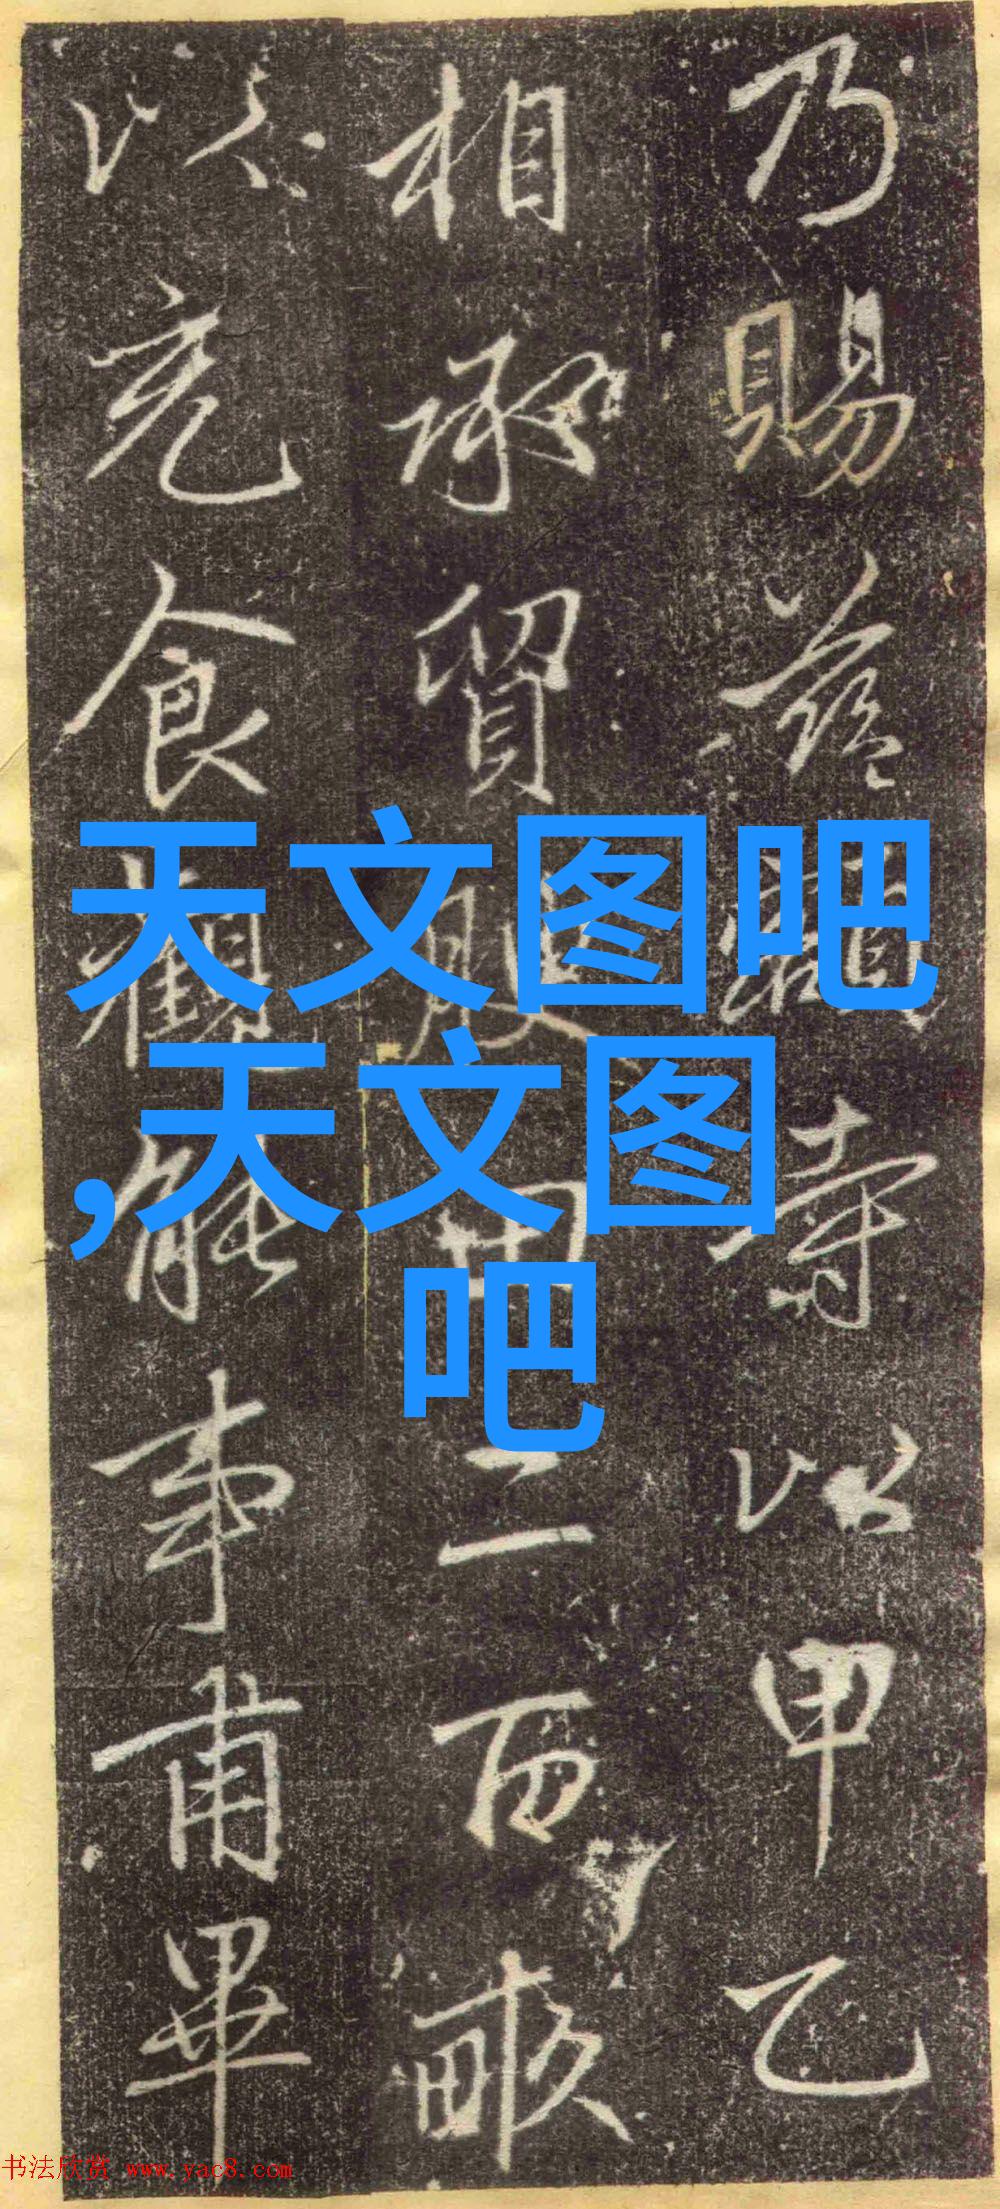 乃賜壽以甲乙
相承貿田二百畝
以充食觀能事甫畢
天文图吧
,天文图
吧
书法欣赏 www.yac8.com